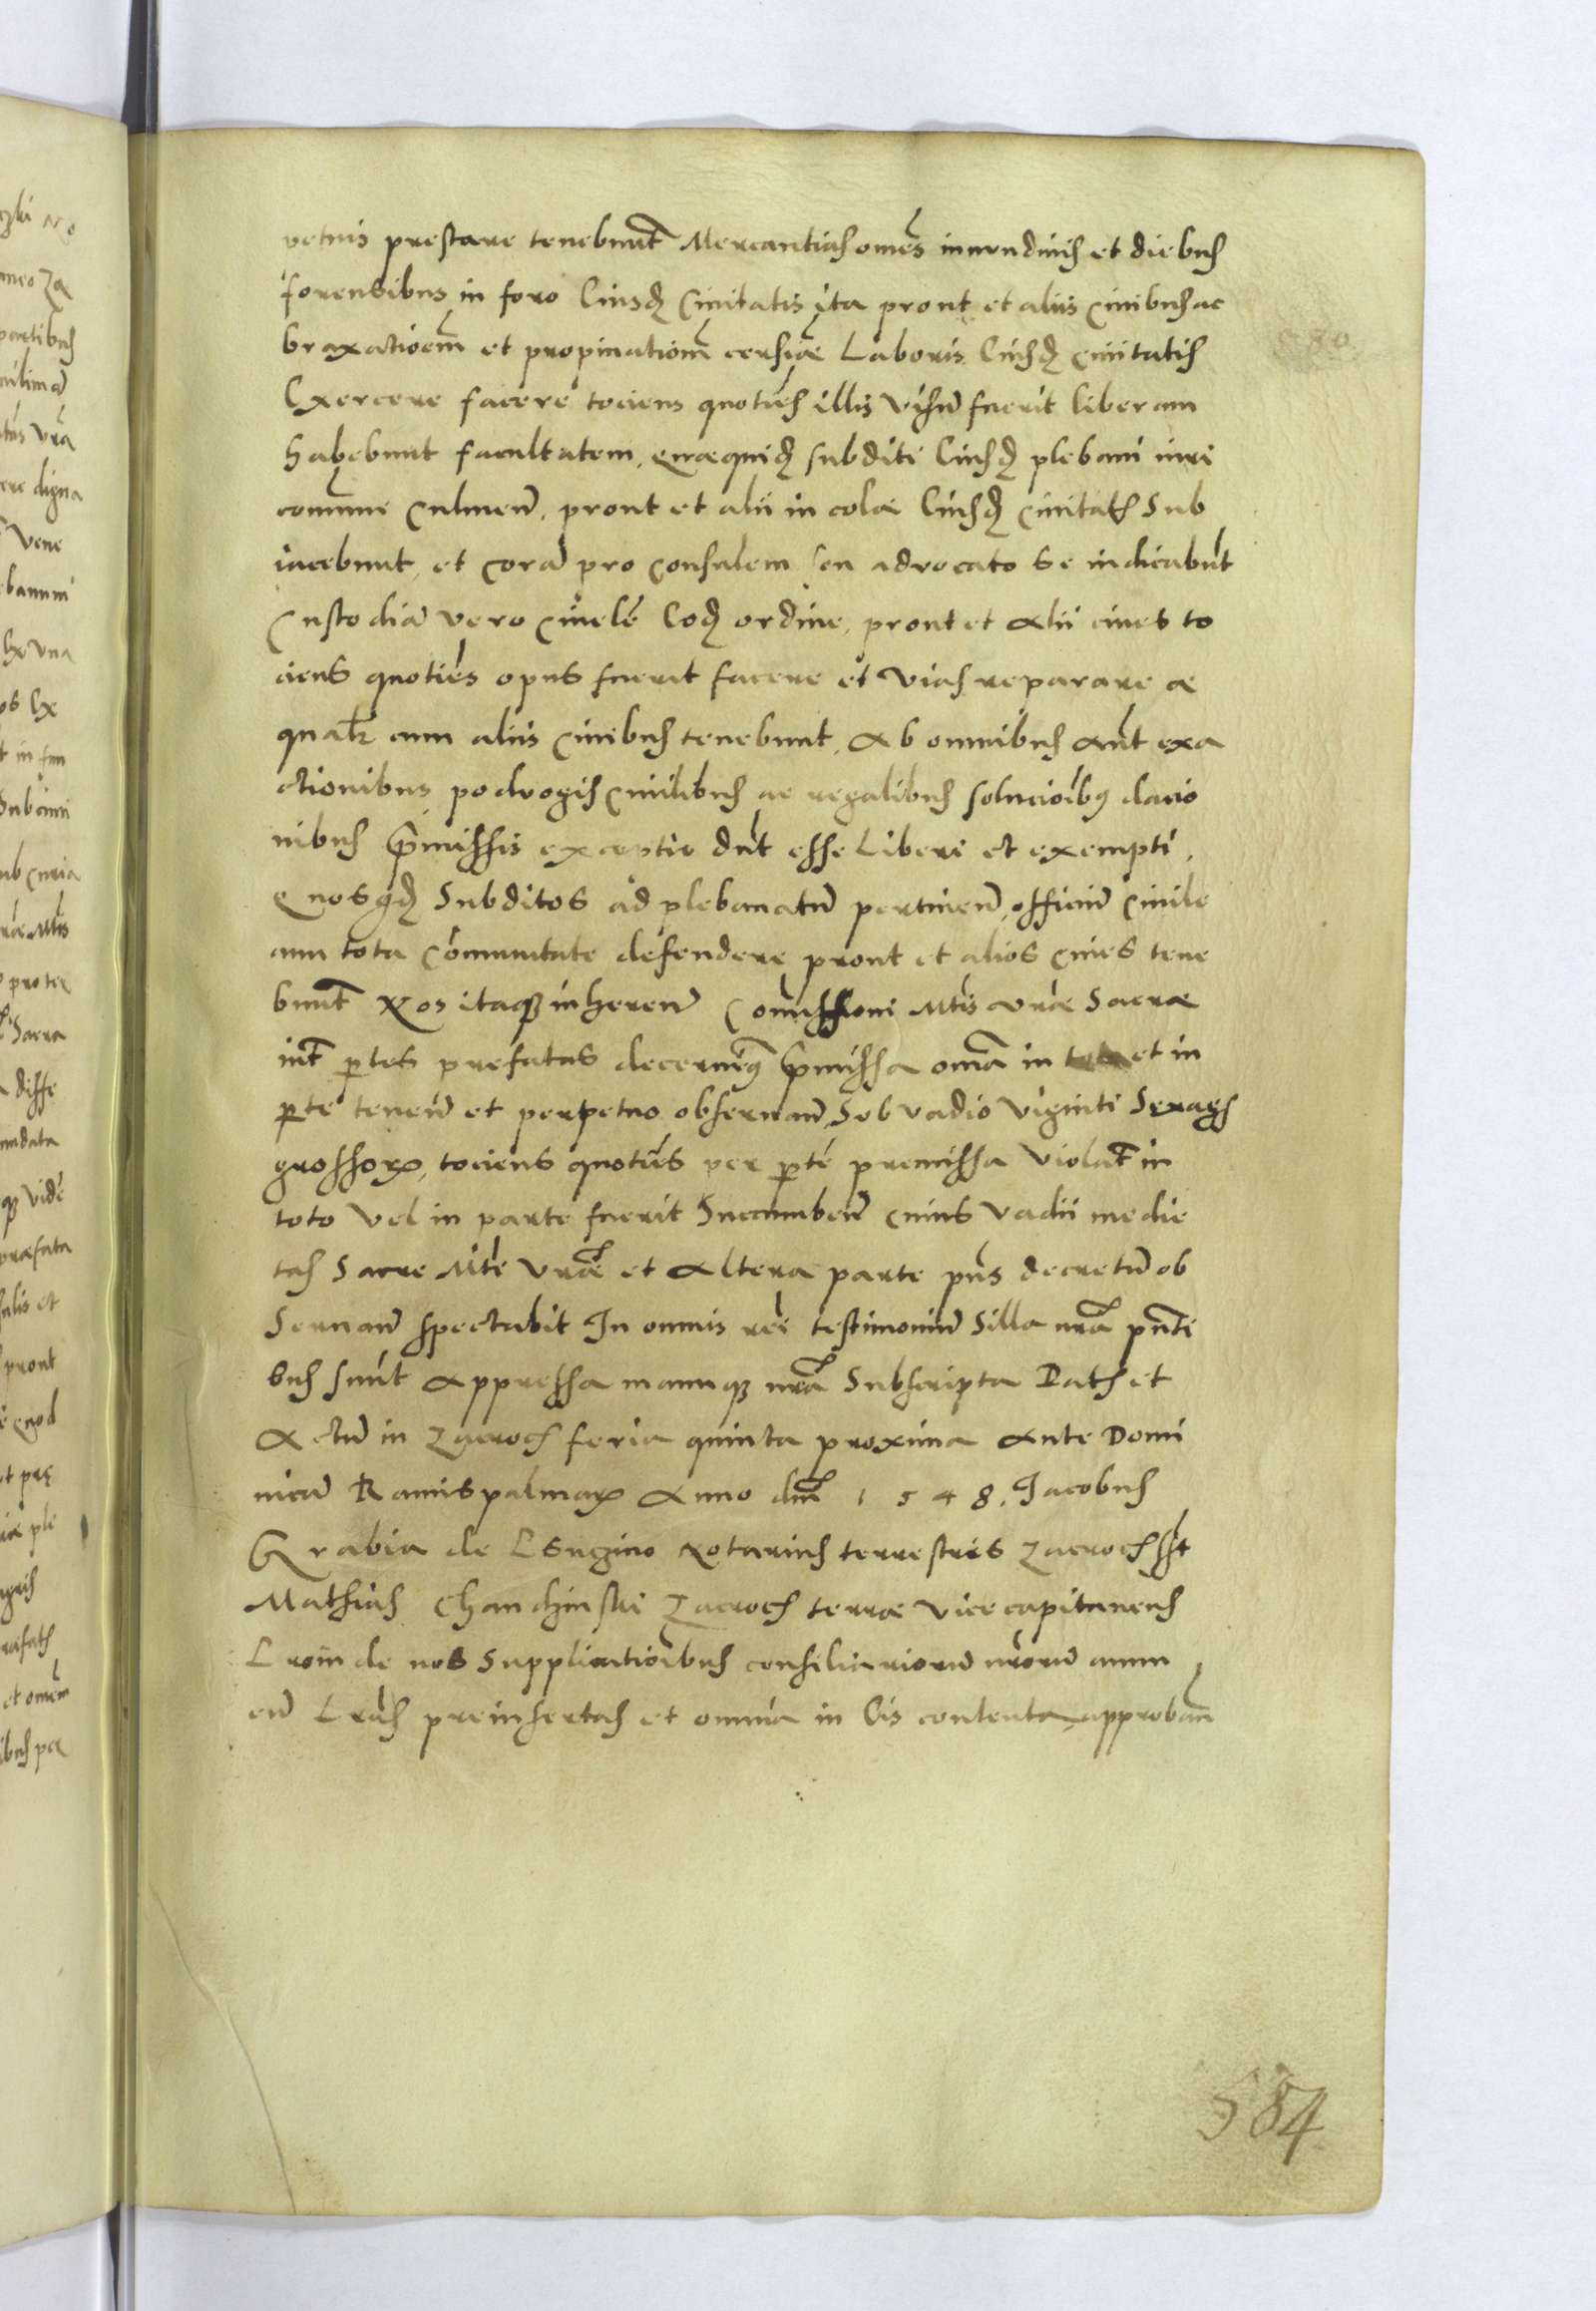 petuis prestare tenebunt̃ Mercantias omẽs in nundinis et diebus
forensibus in foro Eiusdẽ Ciuitatis ita prout et aliis Ciuibus ac
braxatioẽm et propinatiom̃ ceruisiæ Laboris Eiusdẽ Ciuitatis
Exercere facere tociens quotiẽs illis Visũ fuerit liberam
habebunt facultatem, quæquidẽ subditi Eiusdẽ plebani iuri
comuni Culmeñ. prout et alii in colæ Eiusdẽ Ciuitatis Sub
iacebunt, et Corã pro Consulem seu advocato se iudicabũt
Custodiã vero Ciuelẽ Eodẽ ordine, prout et Alii ciues to
ciens quotiẽs opus fuerit facere et Vias reparare æ
qualr̃ cum aliis Ciuibus tenebunt, Ab omnibus Aut̃ exa
ctionibus podrogis Ciuilibus ac regalibus solucioibq dacio
nibus p̃missis exceptis dñt esse Liberi et exempti,
Quosqdẽ Subditos ad plebanatũ pertineñ, officiũ Ciuile
cum tota Cõmunitate defendere prout et alios Ciues tene
bunt̃ Nos itaq inhereñ Comissioni Mtis vræ Sacræ
int̃ ptes prefatas decernimq p̃missa omã in toto et in
pte teneñ et perpetuo obseruañ, Sub vadio Viginti Sexags
grossorum, tociens quotiẽs per ptẽ premissa Violat̃ in
toto Vel in parte fuerit Succumbeñ Cuius Vadii medie
tas Sacre Mti Vræ̃ et Altera parte pñs decretũ ob
Seruañ spectabit In omnis rei testimoniũ Silla nrã pñti
bus sunt Appressa manuq nrã Subscripta Dats et
Actũ in Zacrocs feria quinta proxima Ante Domi
nicã Ramis palmarum Anno dñi 1548. Jacobus
Grabia de Lsugino Notarius terrestris Zacrocs sst
Mathias Chandzinski Zacrocs terræ Vice capitaneus
Proin de nos Supplicatioĩbus consiliariorũ nrorũ annu
eñ Lrãs preinsertas et omnia in Eis contenta, approbañ
584